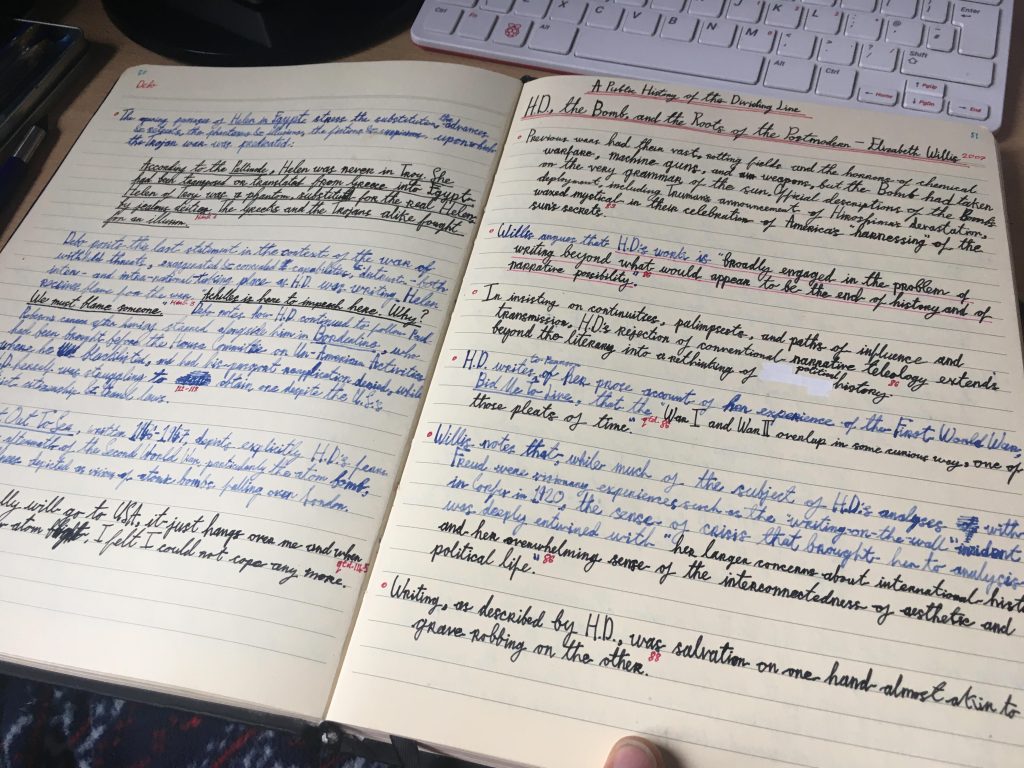 Ctrl
Fn
Alt
Alt
Ctrl
Shift
Enter
Home
PgUp
PgDn
End
Z X C V B N M
Debo
The opening passages of Helen in Egypt stress the substitution, the advances
the Trojan war was predicated:
According to the Pallinode, Helen was never in Troy. She
had been transposed or translated from Greece into Egypt.
Helen of Troy was a phantom, substituted for the real Helen
by jealous deities. The Greeks and the Trojans alike fought
for an illusion.
Debo posits the last statement in the context of the war of
withheld threats, exaggerated & concealed capabilities, distrust - both
inter- and intra-national taking place as H.D. was writing. Helen
receives blame for the war. Achilles is here to impeach her. Why?
We must blame someone. Debo notes how H.D. continued to follow Paul
Robeson's career after having starred alongside him in Borderline, who
had been brought before the House Committee on Un-American Activities
where he was blacklisted, and had his passport reapplication denied, while
herself was struggling to obtain one despite the U.S.'s
citizenship & travel laws.
112-113
Out To Sea, written depicts explicitly H.D.'s fears
aftermath of the Second World War, particularly the atom bomb,
depicted as visions of atomic bombs falling over London.
will go to USA, it just hangs over me and when
atom. I felt I could not cope any more.
A Public History of the Dividing Line
51
H.D., the Bomb, and the Roots of the Postmodern - Elizabeth Willis 2007
• Previous wars had their vast, rotting fields and the horrors of chemical
warfare, machine guns, and weapons, but the Bomb had taken
on the very grammar of the sun. Official descriptions of the Bomb's
deployment, including Truman's announcement of Hiroshima's devastation,
waxed mystical in their celebration of America's "harnessing" of the
sun's secrets.
• Willis argues that H.D.'s work is "broadly engaged in the problem of
writing beyond what would appear to be the end of history and of
narrative possibility."
• In insisting on continuities, palimpsests, and paths of influence and
transmission, H.D.'s rejection of conventional narrative teleology extends
beyond the literary into a rethinking of political history. 86
• H.D. writes of her prose account of her experience of the First World War,
Bid Me to Live, that the "War I and War II overlap in some curious way, one of
those pleats of time." qtd. 86
• Willis notes that, while much of the subject of H.D.'s analyses with
Freud were visionary experiences such as the "writing-on-the-wall" incident
in Corfu in 1920, the sense of crisis that brought her to analysis
was deeply entwined with "her larger concerns about international
and her overwhelming sense of the interconnectedness of aesthetic and
political life." 86
• Writing, as described by H.D., was salvation on one hand almost akin to
grave robbing on the other. 88